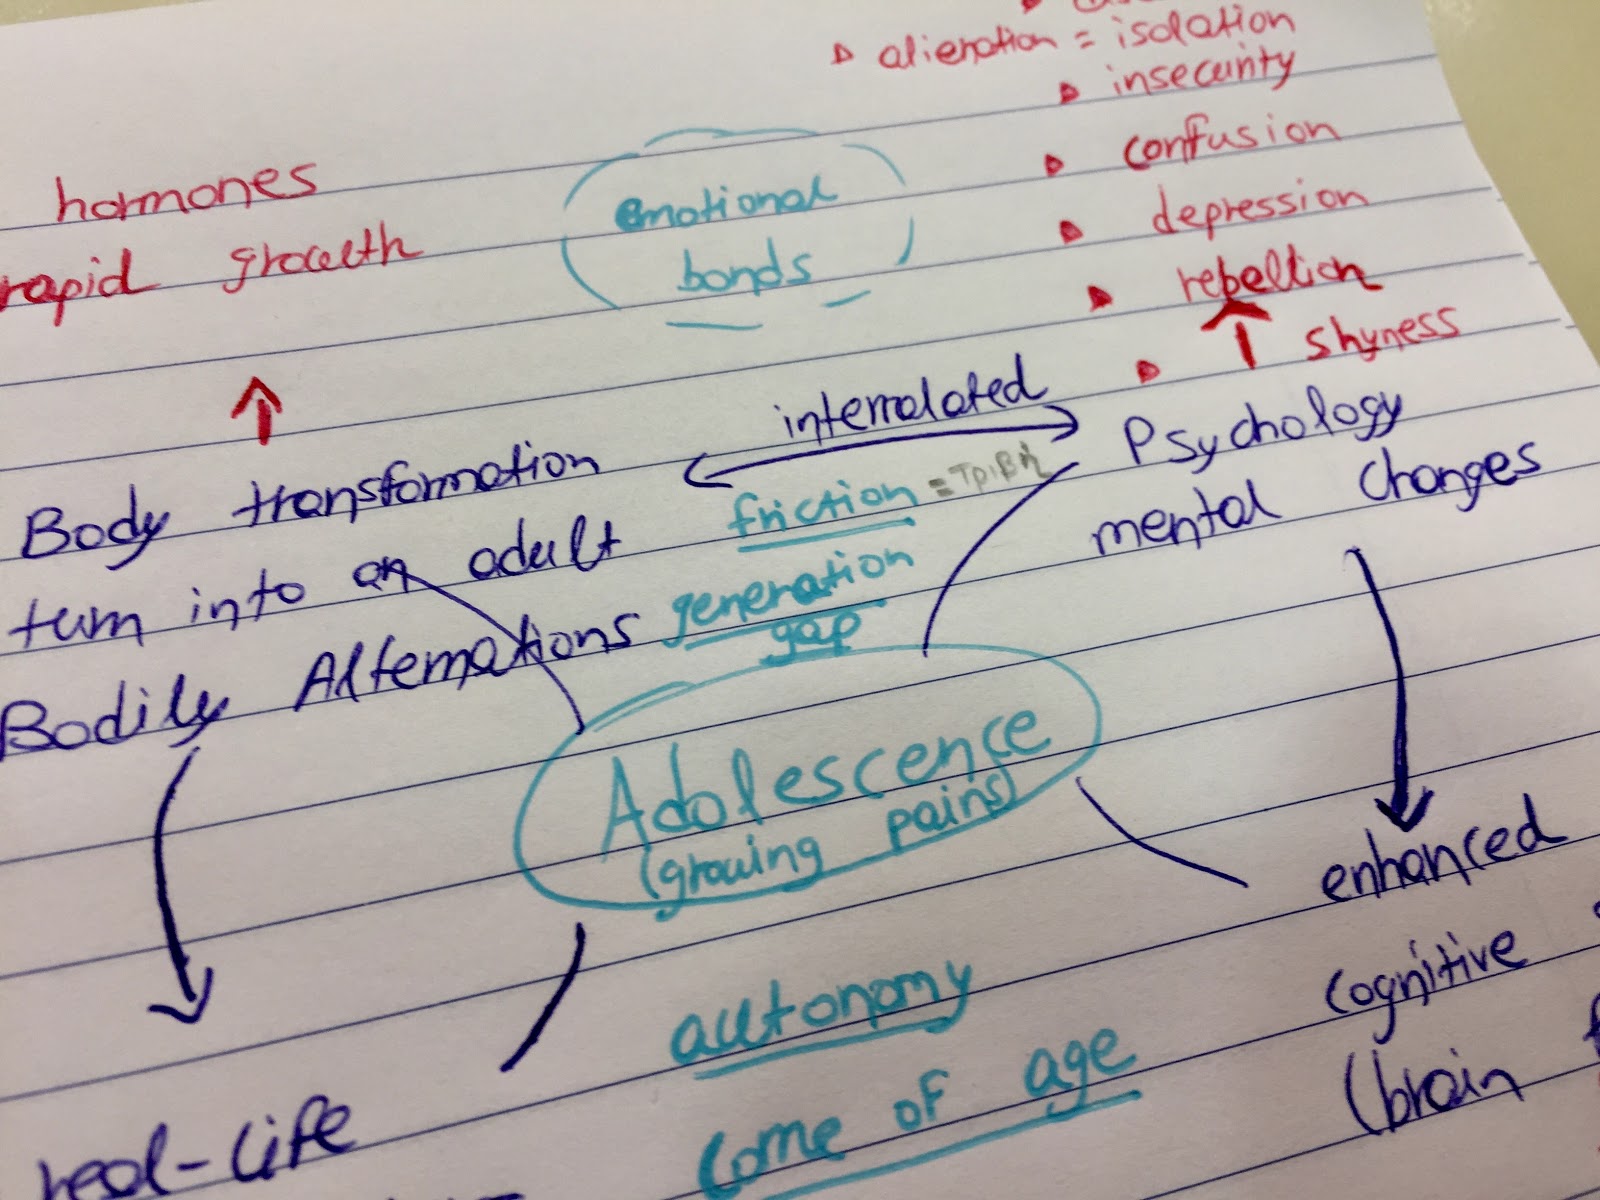 alienation = isolation
insecurity
confusion
depression
rebellion
shyness
hormones
rapid growth
emotional
bonds
interrelated
Psychology
mental changes
Body transformation
turn into an adult
Bodily Alternations
friction = τριβή
generation
gap
Adolescence
(growing pains)
enhanced
cognitive
(brain
autonomy
come of age
real-life